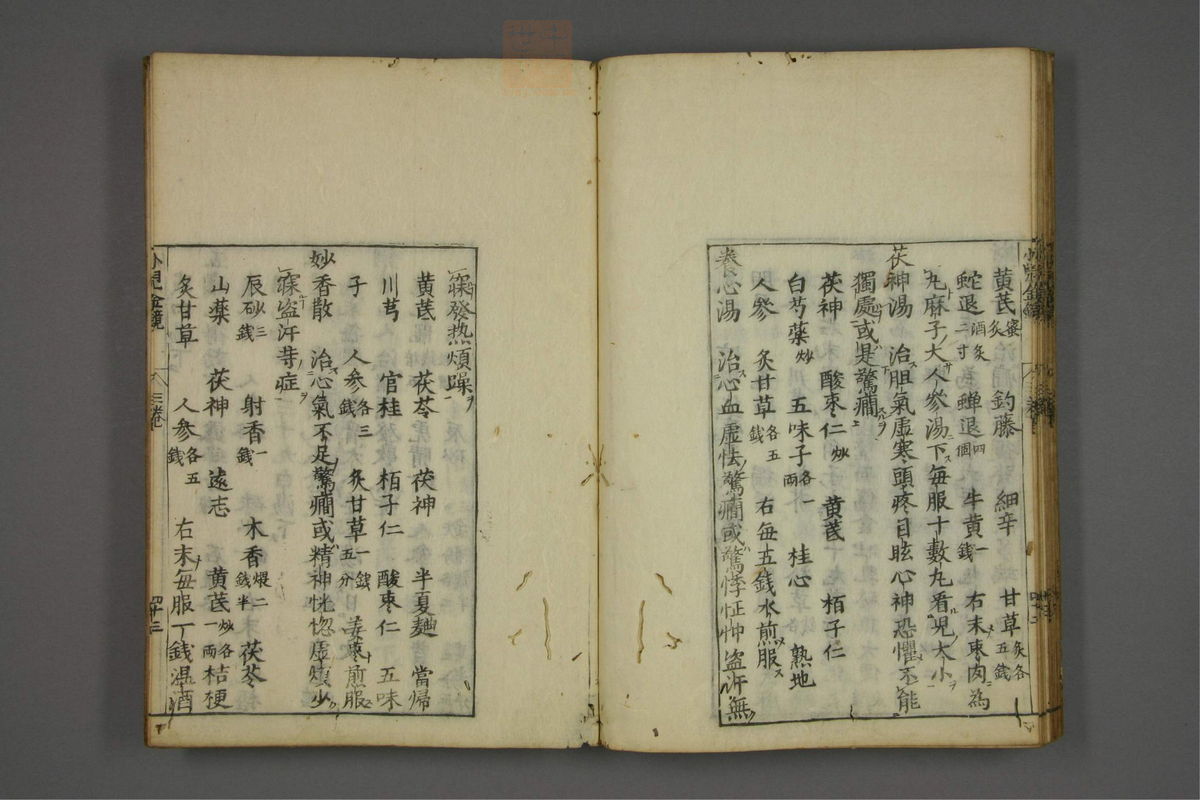 黄芪蜜炙 釣藤 細辛 甘草炙各五錢
蛇退酒炙二寸為 蟬退四個 牛黄一錢 右末棗肉為
丸麻子大人參湯下毎服十數丸看児大小
茯神湯 治胆氣虚寒頭疼目眩心神恐懼不能
獨處或是驚癎
茯神 酸棗仁炒 黄芪 栢子仁
白芍藥炒 五味子各一兩 桂心 熟地
人參 炙甘草各五錢 右毎五錢水煎服
養心湯 治心血虚怯驚癎或驚悸怔忡盗汗無
寐發热煩躁
黄芪 茯苓 茯神 半夏麯 當帰
川芎 官桂 栢子仁 酸棗仁 五味
子 人參各三錢 炙甘草一錢五分 姜棗煎服
妙香散 治心氣不足驚癎或精神恍惚虚煩少
寐盗汗等症
辰砂三錢 射香一錢 木香煨二錢半 茯苓
山藥 茯神 遠志 黄芪炒各一兩 桔梗
炙甘草 人參各五錢 右末毎服一錢温酒
小児金鏡 三卷 四十三